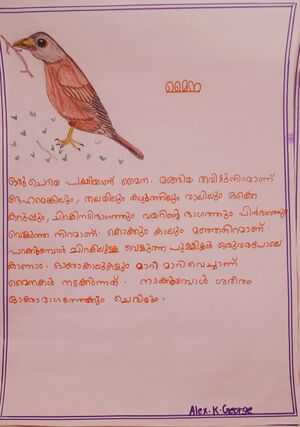 മൈന
ഒരു ചെറിയ പക്ഷിയാണ് മൈന. മങ്ങിയ തവിട്ടുനിറമാണ്
ദേഹമെങ്കിലും, തലയിലും കഴുത്തിലും വാലിലും ഒക്കെ
കറുപ്പും, ചിറകിനടിഭാഗത്തും വയറിന്റെ ഭാഗത്തും പിൻഭാഗത്തും
വെളുത്ത നിറമാണ്. കൊക്കും കാലും മഞ്ഞനിറമാണ്.
പറക്കുമ്പോൾ ചിറകിലുള്ള വെളുത്ത പുള്ളികൾ ഒരുവരപോലെ
കാണാം. ഓരോകാലുകളും മാറി മാറി വെച്ചാണ്
മൈനകൾ നടക്കുന്നത്. നടക്കുമ്പോൾ ശരീരം
ഓരോഭാഗത്തേക്കും ചെരിയും.
Alex.K.George